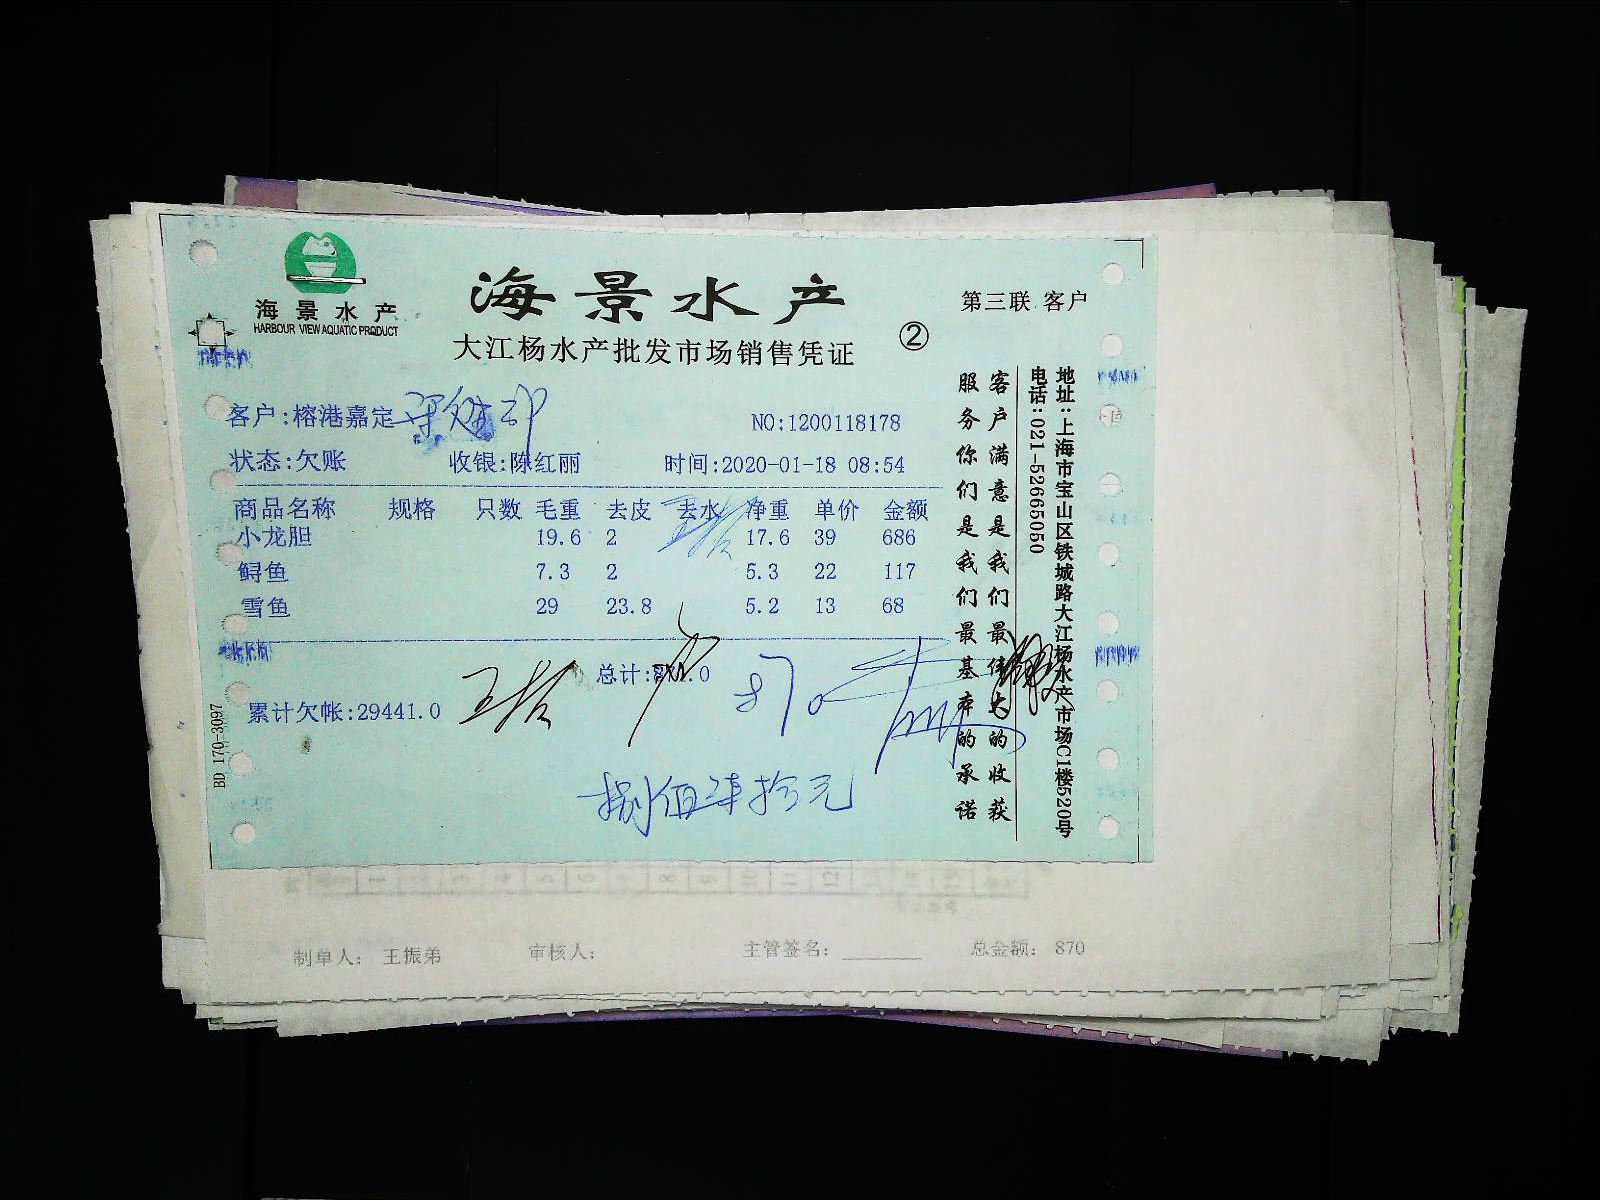 海景水产
HARBOUR VIEW AQUATIC PRODUCT
海景水产
大江杨水产批发市场销售凭证
②
第三联 客户
客户:榕港嘉定
NO:1200118178
状态:欠账 收银:陈红丽 时间:2020-01-18 08:54
商品名称 规格 只数 毛重 去皮 去水 净重 单价 金额
小龙胆 19.6 2 17.6 39 686
鲟鱼 7.3 2 5.3 22 117
雪鱼 29 23.8 5.2 13 68
总计:871.0
870
累计欠帐:29441.0
捌佰柒拾元
客户满意是我们最大的收获
服务你们是我们最基本的承诺
地址:上海市宝山区铁城路大江杨水产市场C1楼520号
电话:021-52665050
BD 170-3097
制单人: 王振弟 审核人: 主管签名: 总金额: 870